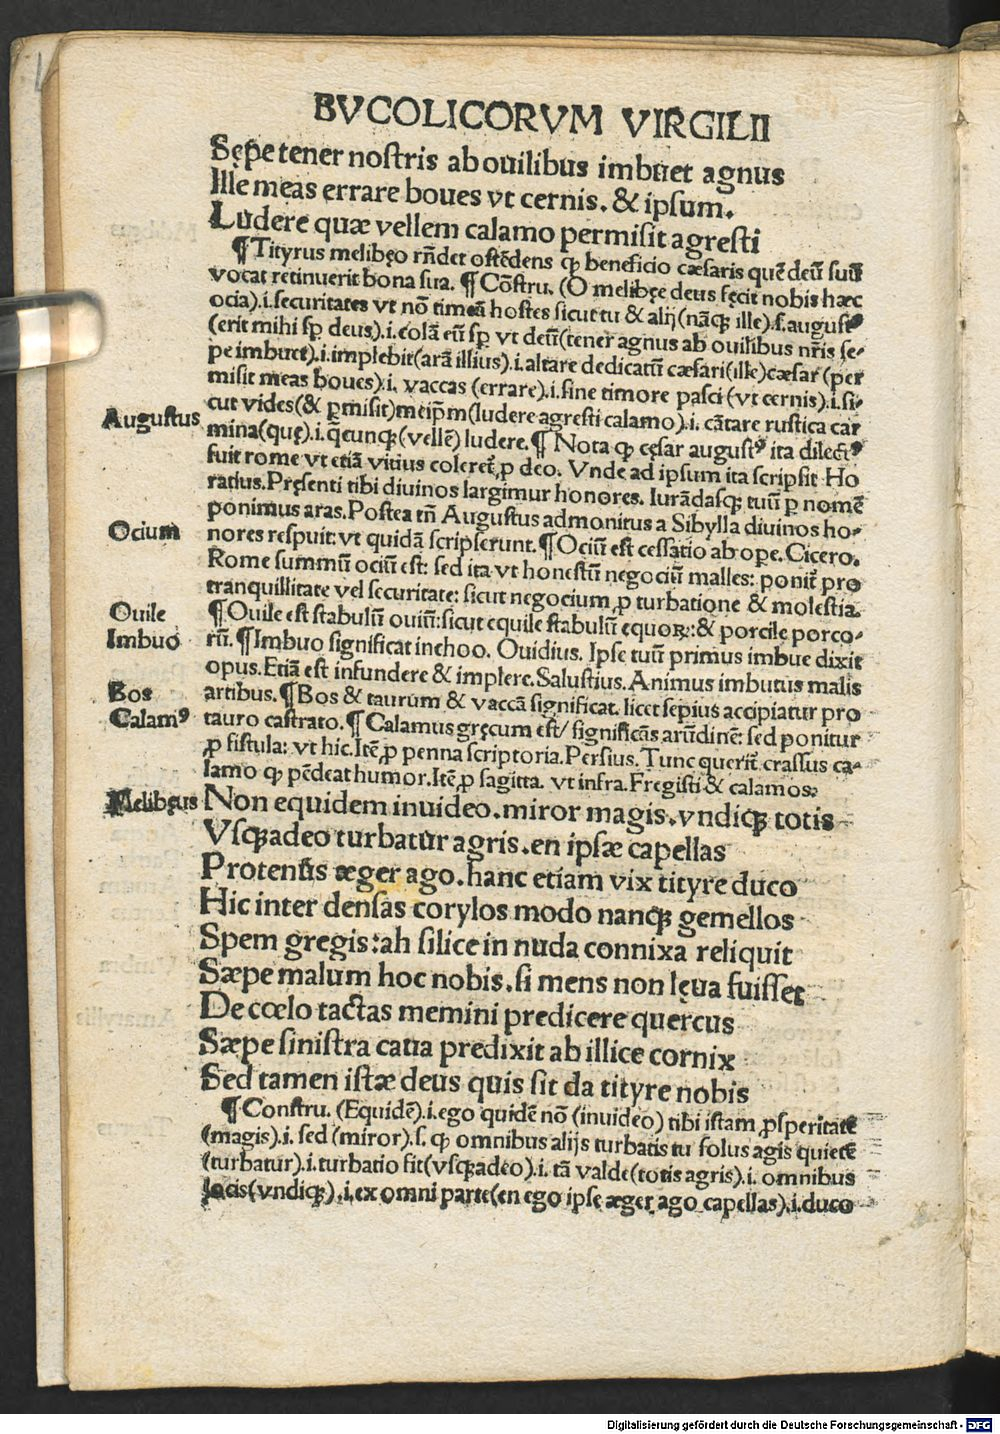 BVCOLICORVM VIRGILII
Sępe tener nostris ab ouilibus imbuet agnus
Ille meas errare boues vt cernis. & ipsum.
Ludere quæ vellem calamo permisit agresti
¶ Tityrus melibęo rñdet ostẽdens ꝙ beneficio cæsaris quẽ deũ suũ
vocat retinuerit bona sua. ¶ Cõstru. (O melibęe deus fęcit nobis hæc
ocia).i.securitates vt nõ timeã hostes sicut tu & alij(nãqꝫ ille).s.augustꝰ
(erit mihi sp̱ deus).i.colã eũ sp̱ vt deũ(tener agnus ab ouilibus nr̃is se-
pe imbuet).i.implebit(arã illius).i.altare dedicatũ cæsari(ille)cæsar (per
misit meas boues).i. vaccas (errare).i.sine timore pasci (vt cernis).i.si-
cut vides(& ꝑmisit)meip̃m(ludere agresti calamo).i. cãtare rustica car
Augustus
mina(quę).i.q̃cunqꝫ(vellẽ) ludere.¶ Nota ꝙ cęsar augustꝰ ita dilectꝰ
fuit rome vt etiã vitius coleret᷑ ꝓ deo. Vnde ad ipsum ita scripsit Ho
ratius.Pręsenti tibi diuinos largimur honores. Iurãdasqꝫ tuũ ꝑ nomẽ
ponimus aras.Postea tñ Augustus admonitus a Sibylla diuinos ho-
Ocium
nores respuit: vt quidã scripserunt.¶ Ociũ est cessatio ab ope. Cicero.
Rome summũ ociũ est: sed ita vt honestũ negociũ malles: ponit᷑ pro
tranquillitate vel securitate: sicut negocium ꝓ turbatione & molestia.
Ouile
¶ Ouile est stabulũ ouiũ:sicut equile stabulũ equoꝝ:& porcile porco-
Imbuo
rũ.¶ Imbuo significat inchoo. Ouidius. Ipse tuũ primus imbue dixit
opus.Etiã est infundere & implere.Salustius.Animus imbutus malis
Bos
artibus.¶ Bos & taurum & vaccã significat. licet sepius accipiatur pro
Calamꝰ
tauro castrato.¶ Calamus gręcum est/ significãs arũdinẽ: sed ponitur
ꝓ fistula: vt hic.Itẽ ꝓ penna scriptoria.Persius.Tunc querit᷑ crassus ca-
lamo ꝙ pẽdeat humor.Itẽ ꝓ sagitta. vt infra.Fregisti & calamos:
Melibęus
Non equidem inuideo.miror magis.vndiqꝫ totis
Vsqꝫadeo turbatur agris.en ipsæ capellas
Protenus æger ago.hanc etiam vix tityre duco
Hic inter densas corylos modo nanqꝫ gemellos
Spem gregis:ah silice in nuda connixa reliquit
Sæpe malum hoc nobis.si mens non lęua fuisset
De cœlo tactas memini predicere quercus
Sæpe sinistra caua predixit ab illice cornix
Sed tamen istæ deus quis sit da tityre nobis
¶ Constru. (Equidẽ).i.ego quidẽ nõ (inuideo) tibi istam ꝓsperitatẽ
(magis).i. sed (miror).s. ꝙ omnibus alijs turbatis tu solus agis quietẽ
(turbatur).i.turbatio fit(vsqꝫadeo).i. tã valde(totis agris).i. omnibus
locis(vndiqꝫ).i.ex omni parte(en ego ipse æger ago capellas).i.duco
Digitalisierung gefördert durch die Deutsche Forschungsgemeinschaft - DFG